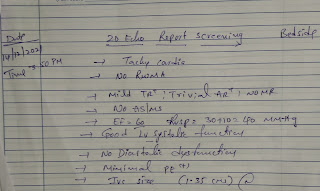 Date 2D Echo Report Screening Bedside
14/12/202
Time 50 PM → Tachy cardia
→ No RWMA
→ Mild TR+, Trivial AR+, NO MR
→ No AS/MS
→ EF = 60 RVSP = 30+10 = 40 mm-Hg
→ Good LV Systolic function
→ No Diastolic dysfunction
→ Minimal PE+
→ IVC size (1.35 cms) (N)